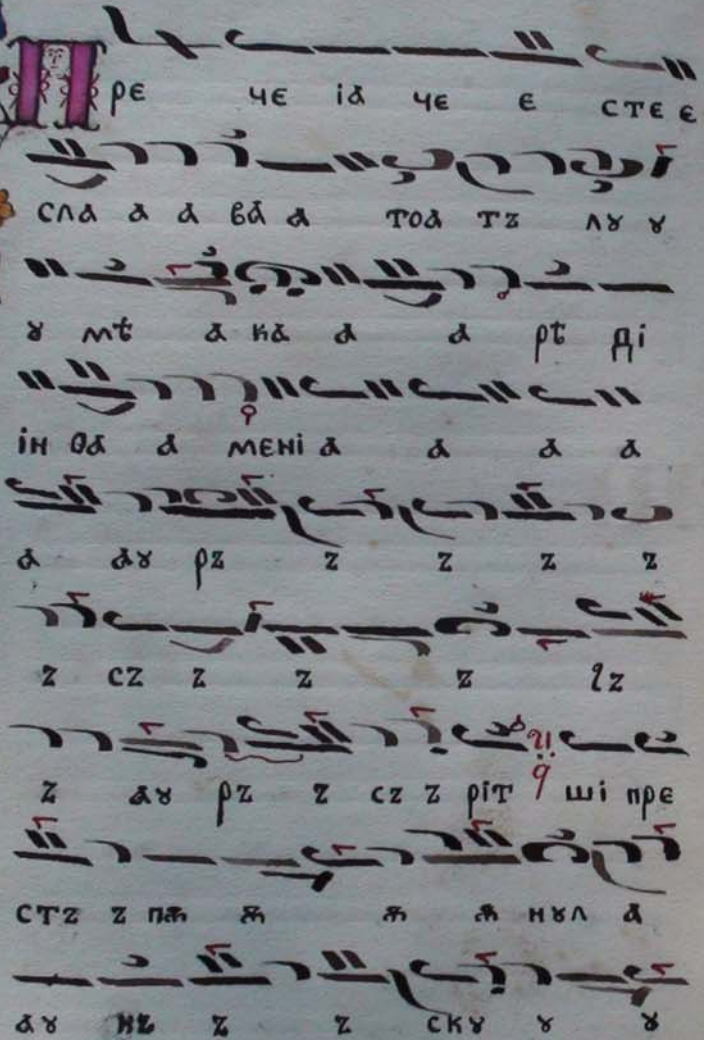 Пре че іа че е сте е
сла а а ва а тоа тъ лꙋ ꙋ
ꙋ мѣ а ка а а рѣ ді
ін оа а мені а а а а
а аꙋ ръ ъ ъ ъ ъ
ъ съ ъ ъ ъ
ъ аꙋ ръ ъ съ ъ ріт ші пре
стъ ъ пѫ ѫ ѫ ѫ нꙋл а
аꙋ нъ ъ ъ скꙋ ꙋ ꙋ